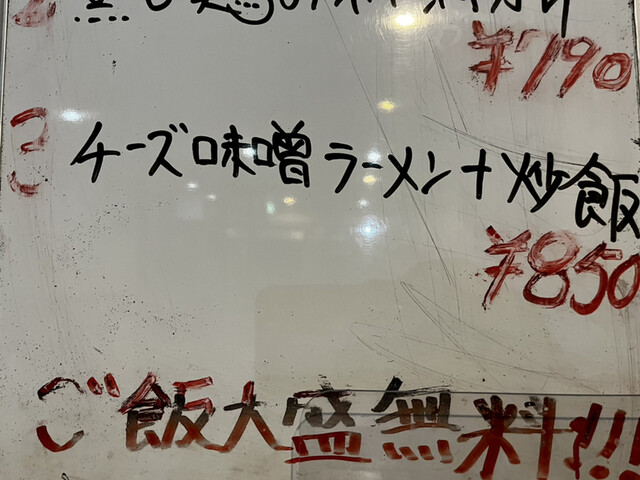 ¥790
チーズ味噌ラーメン+炒飯
¥850
ご飯大盛無料!!!